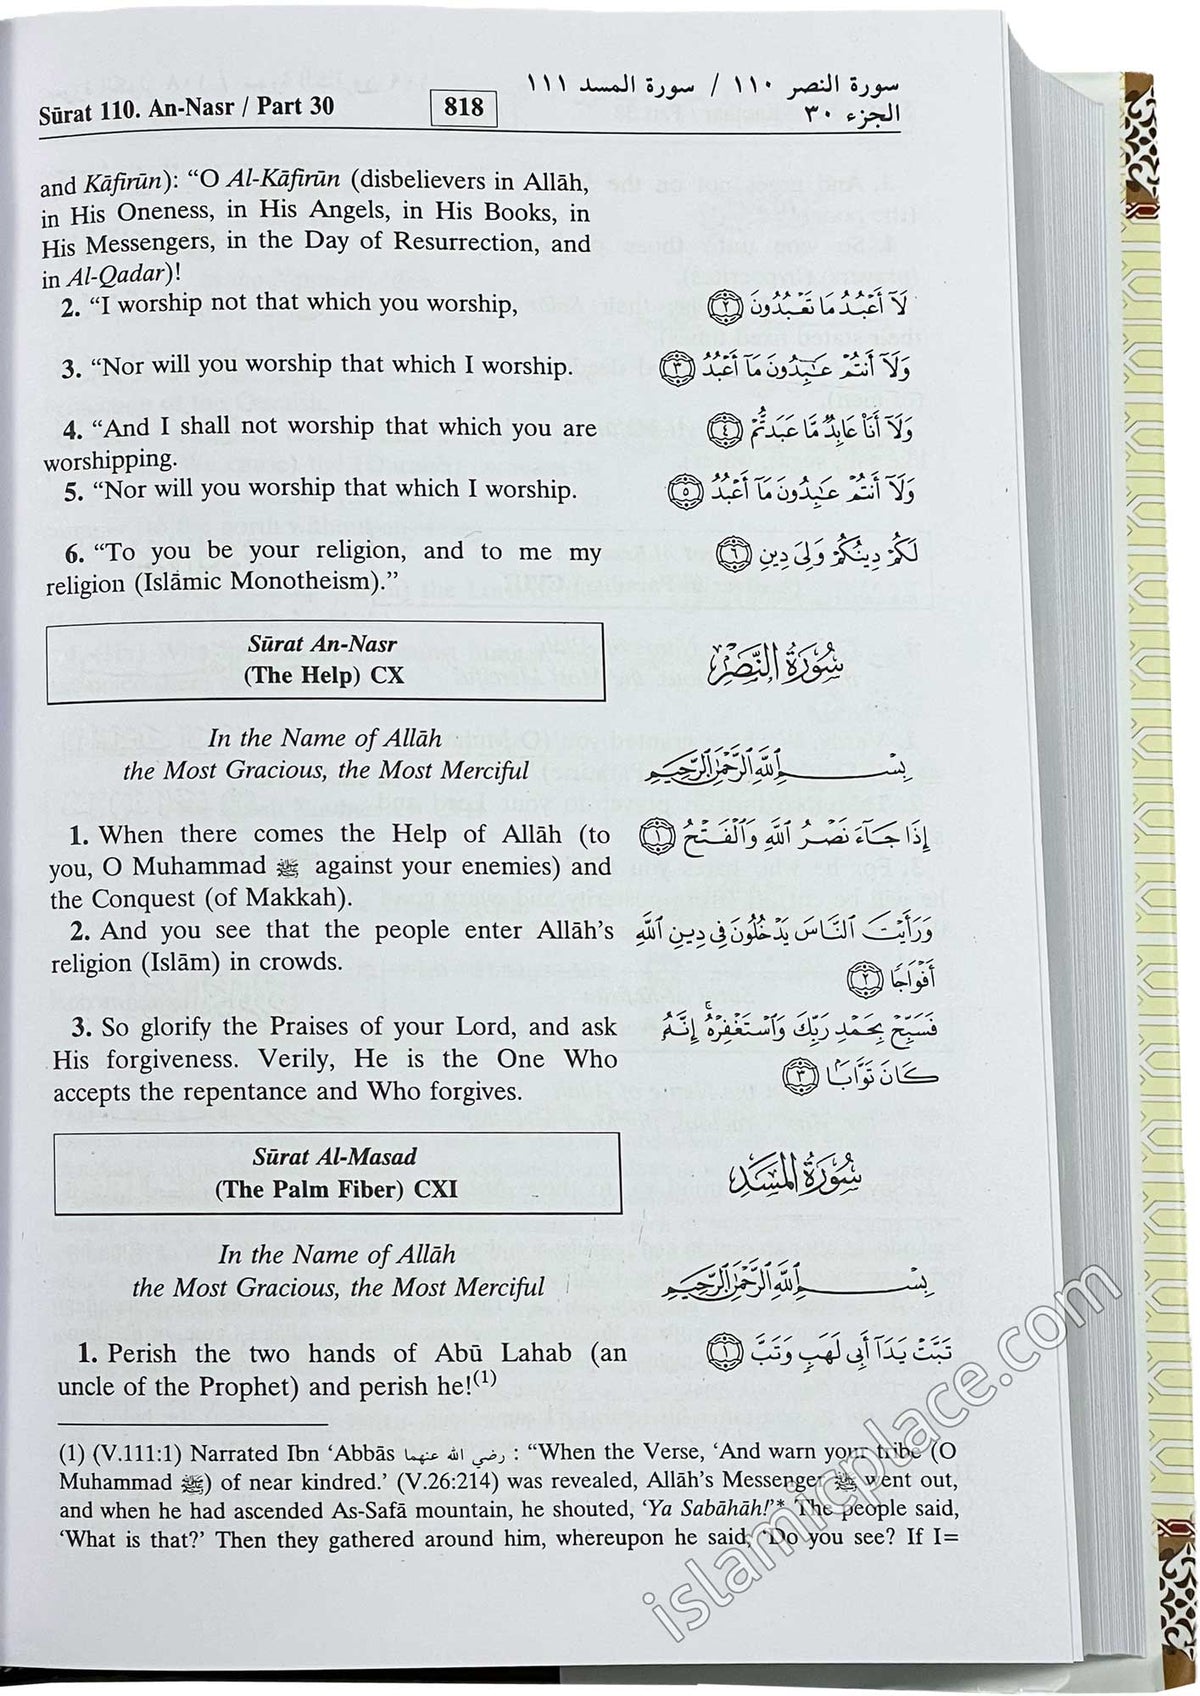 Sūrat 110. An-Nasr / Part 30
818
سورة النصر ١١٠ / سورة المسد ١١١
الجزء ٣٠
and Kāfirūn): “O Al-Kāfirūn (disbelievers in Allāh,
in His Oneness, in His Angels, in His Books, in
His Messengers, in the Day of Resurrection, and
in Al-Qadar)!
2. “I worship not that which you worship,
لَآ أَعْبُدُ مَا تَعْبُدُونَ ٢
3. “Nor will you worship that which I worship.
وَلَآ أَنتُمْ عَٰبِدُونَ مَآ أَعْبُدُ ٣
4. “And I shall not worship that which you are
worshipping.
وَلَآ أَنَا۠ عَابِدٌ مَّا عَبَدتُّمْ ٤
5. “Nor will you worship that which I worship.
وَلَآ أَنتُمْ عَٰبِدُونَ مَآ أَعْبُدُ ٥
6. “To you be your religion, and to me my
religion (Islāmic Monotheism).”
لَكُمْ دِينُكُمْ وَلِىَ دِينِ ٦
Sūrat An-Nasr
(The Help) CX
سُورَةُ النَّصْرِ
In the Name of Allāh
the Most Gracious, the Most Merciful
بِسْمِ ٱللَّهِ ٱلرَّحْمَٰنِ ٱلرَّحِيمِ
1. When there comes the Help of Allāh (to
you, O Muhammad ﷺ against your enemies) and
the Conquest (of Makkah).
إِذَا جَآءَ نَصْرُ ٱللَّهِ وَٱلْفَتْحُ ١
2. And you see that the people enter Allāh’s
religion (Islām) in crowds.
وَرَأَيْتَ ٱلنَّاسَ يَدْخُلُونَ فِى دِينِ ٱللَّهِ
أَفْوَاجًا ٢
3. So glorify the Praises of your Lord, and ask
His forgiveness. Verily, He is the One Who
accepts the repentance and Who forgives.
فَسَبِّحْ بِحَمْدِ رَبِّكَ وَٱسْتَغْفِرْهُ ۚ إِنَّهُۥ
كَانَ تَوَّابًۢا ٣
Sūrat Al-Masad
(The Palm Fiber) CXI
سُورَةُ المَسَدِ
In the Name of Allāh
the Most Gracious, the Most Merciful
بِسْمِ ٱللَّهِ ٱلرَّحْمَٰنِ ٱلرَّحِيمِ
1. Perish the two hands of Abū Lahab (an
uncle of the Prophet) and perish he!(1)
تَبَّتْ يَدَآ أَبِى لَهَبٍ وَتَبَّ ١
(1) (V.111:1) Narrated Ibn ‘Abbās رضي الله عنهما : “When the Verse, ‘And warn your tribe (O
Muhammad ﷺ) of near kindred.’ (V.26:214) was revealed, Allāh’s Messenger ﷺ went out,
and when he had ascended As-Safā mountain, he shouted, ‘Ya Sabāhāh!’* The people said,
‘What is that?’ Then they gathered around him, whereupon he said, ‘Do you see? If I=
islamicplace.com